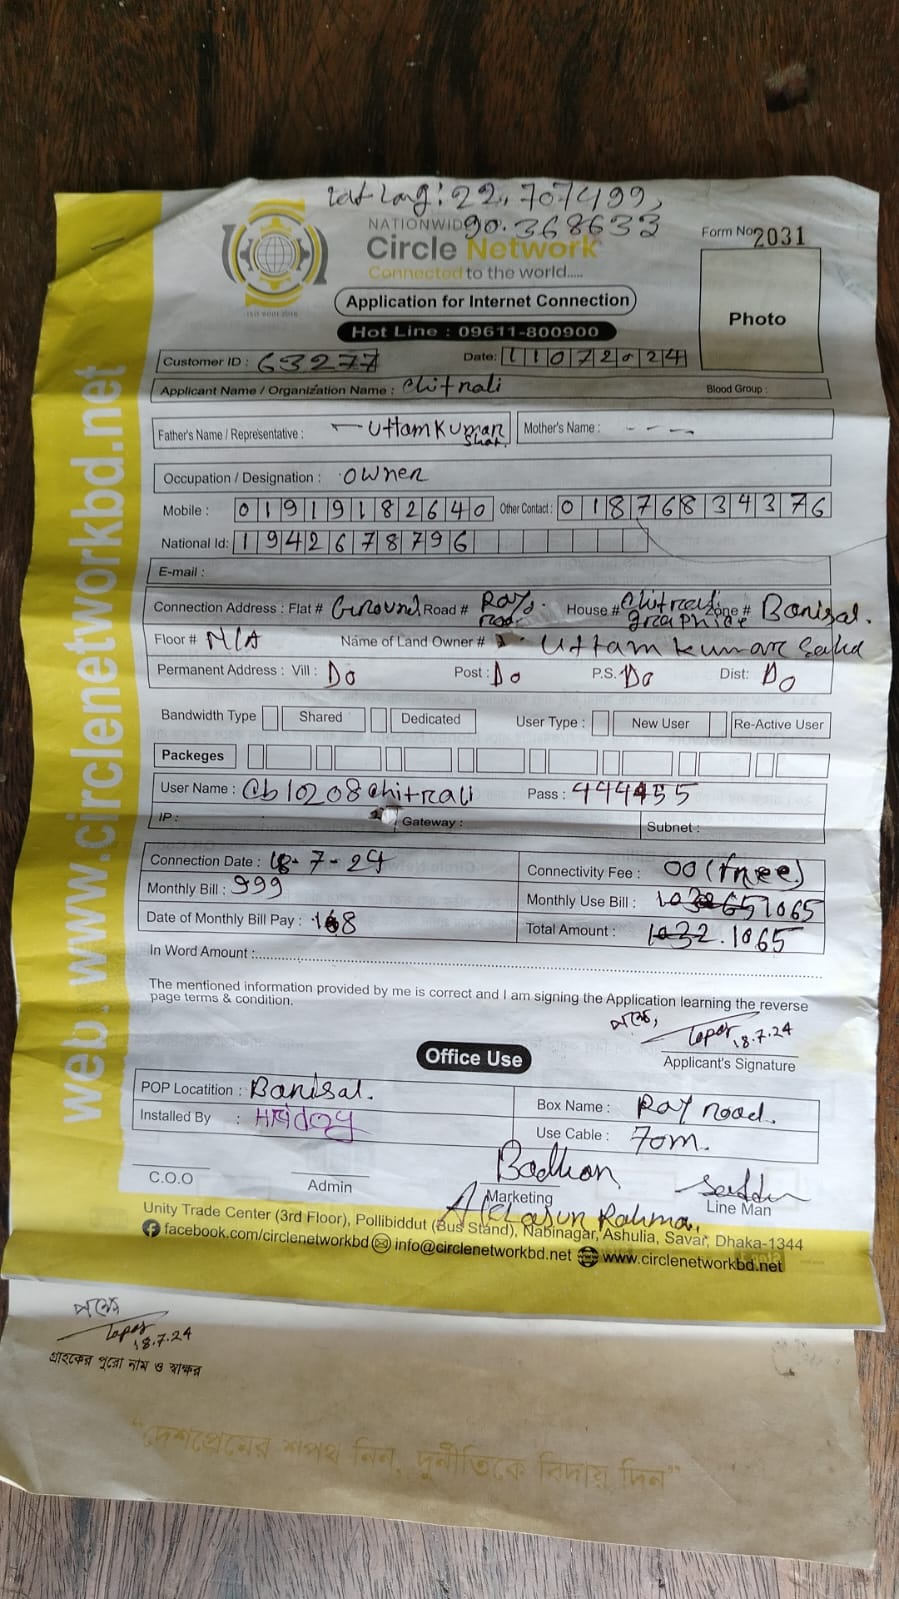 Lat Long: 22.707499,
90.368633
NATIONWIDE
Circle Network
Connected to the world.....
ISO 9001:2015
Form No 2031
Photo
Application for Internet Connection
Hot Line : 09611-800900
Customer ID : 63277 Date: 11072024
Applicant Name / Organization Name : Chitrali Blood Group :
Father's Name / Representative : Uttam Kumar Mother's Name : - - -
Occupation / Designation : Owner
Mobile : 01919182640 Other Contact : 01876834376
National Id: 1942678796
E-mail :
Connection Address : Flat # Ground Road # Ray road House # Chitrali graphice Zone # Barisal.
Floor # N/A Name of Land Owner # Uttam Kumar Saha
Permanent Address : Vill : Do Post : Do P.S. Do Dist: Do
Bandwidth Type Shared Dedicated User Type : New User Re-Active User
Packeges
User Name : Cb10208chitrali Pass : 444455
IP : Gateway : Subnet :
Connection Date : 18-7-24 Connectivity Fee : 00 (free)
Monthly Bill : 999 Monthly Use Bill : 1065
Date of Monthly Bill Pay : Total Amount : 1032. 1065
In Word Amount :
The mentioned information provided by me is correct and I am signing the Application learning the reverse
page terms & condition.
18.7.24
Applicant's Signature
Office Use
POP Locatition : Barisal. Box Name : Ray road.
Installed By : Hridoy Use Cable : 70m.
Badhon
C.O.O Admin Marketing Line Man
Rahman
Unity Trade Center (3rd Floor), Pollibiddut (Bus Stand), Nabinagar, Ashulia, Savar, Dhaka-1344
facebook.com/circlenetworkbd info@circlenetworkbd.net www.circlenetworkbd.net
web: www.circlenetworkbd.net
18.7.24
গ্রাহকের পুরো নাম ও স্বাক্ষর
"দেশপ্রেমের শপথ নিন, দুর্নীতিকে বিদায় দিন"